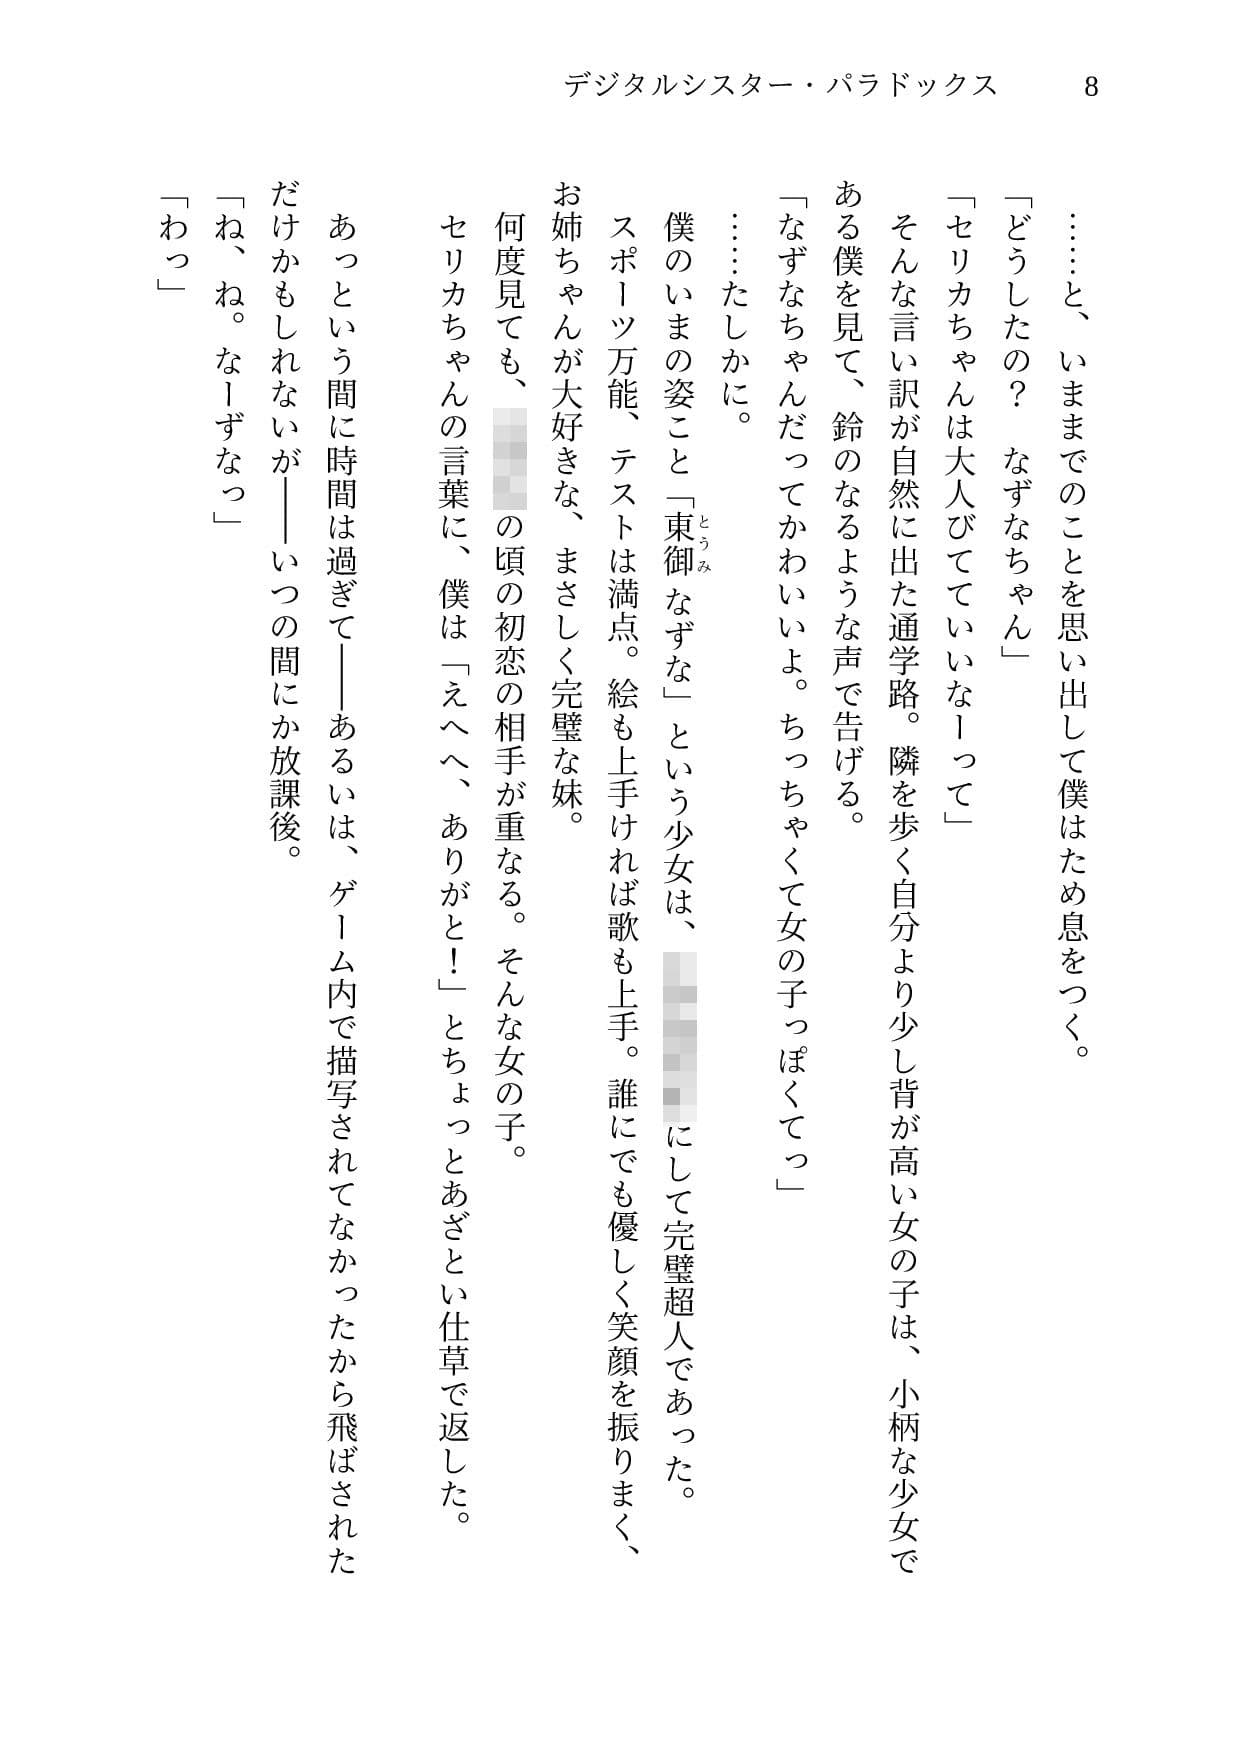 デジタルシスター・パラドックス 8
……と、いままでのことを思い出して僕はため息をつく。
「どうしたの？　なずなちゃん」
「セリカちゃんは大人びてていいなーって」
そんな言い訳が自然に出た通学路。隣を歩く自分より少し背が高い女の子は、小柄な少女で
ある僕を見て、鈴のなるような声で告げる。
「なずなちゃんだってかわいいよ。ちっちゃくて女の子っぽくてっ」
……たしかに。
僕のいまの姿こと「東御なずな」という少女は、にして完璧超人であった。
とうみ
スポーツ万能、テストは満点。絵も上手ければ歌も上手。誰にでも優しく笑顔を振りまく、
お姉ちゃんが大好きな、まさしく完璧な妹。
何度見ても、の頃の初恋の相手が重なる。そんな女の子。
セリカちゃんの言葉に、僕は「えへへ、ありがと！」とちょっとあざとい仕草で返した。
あっという間に時間は過ぎて――あるいは、ゲーム内で描写されてなかったから飛ばされた
だけかもしれないが――いつの間にか放課後。
「ね、ね。なーずなっ」
「わっ」